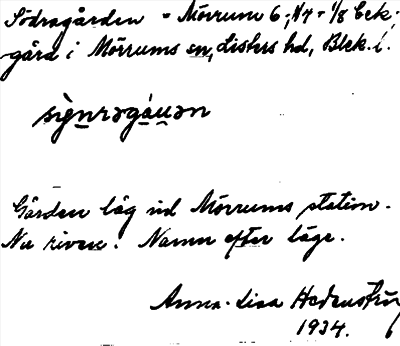 Södragården - Mörrum 6; 1/4 + 1/8 bek.
gård i Mörrums sn, Listers hd, Blek. l.
Gården låg vid Mörrums station.
Nu riven. Namn efter läge.
Anna-Lisa Hedenström
1934.